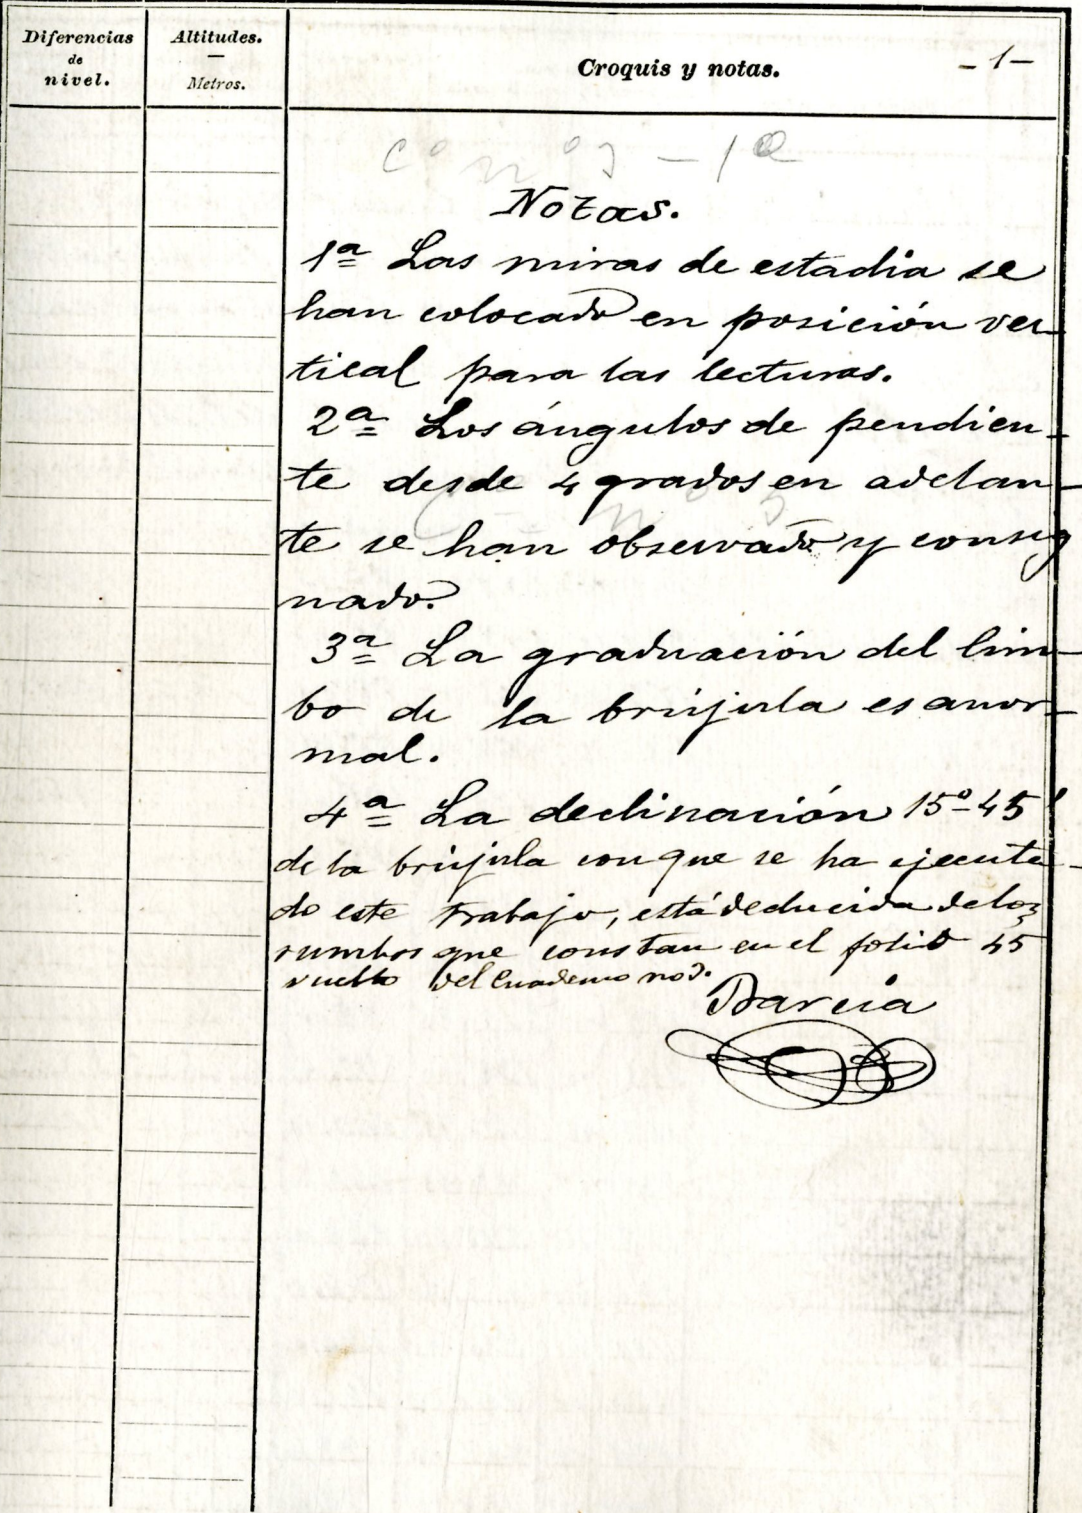 Diferencias
de
nivel.
Altitudes.
Metros.
Croquis y notas.
- 1 -
Notas.
1ª Las miras de estadia se
han colocado en posición ver-
tical para las lecturas.
2ª Los ángulos de pendien-
te desde 4 grados en adelan-
te se han observado y consig
nado.
3ª La graduación del lim-
bo de la brújula es anor-
mal.
4ª La declinación 15º-45'
de la brújula con que se ha ejecuta-
do este trabajo, está deducida de los
rumbos que constan en el folio 45
vuelto del Cuaderno
Barcia